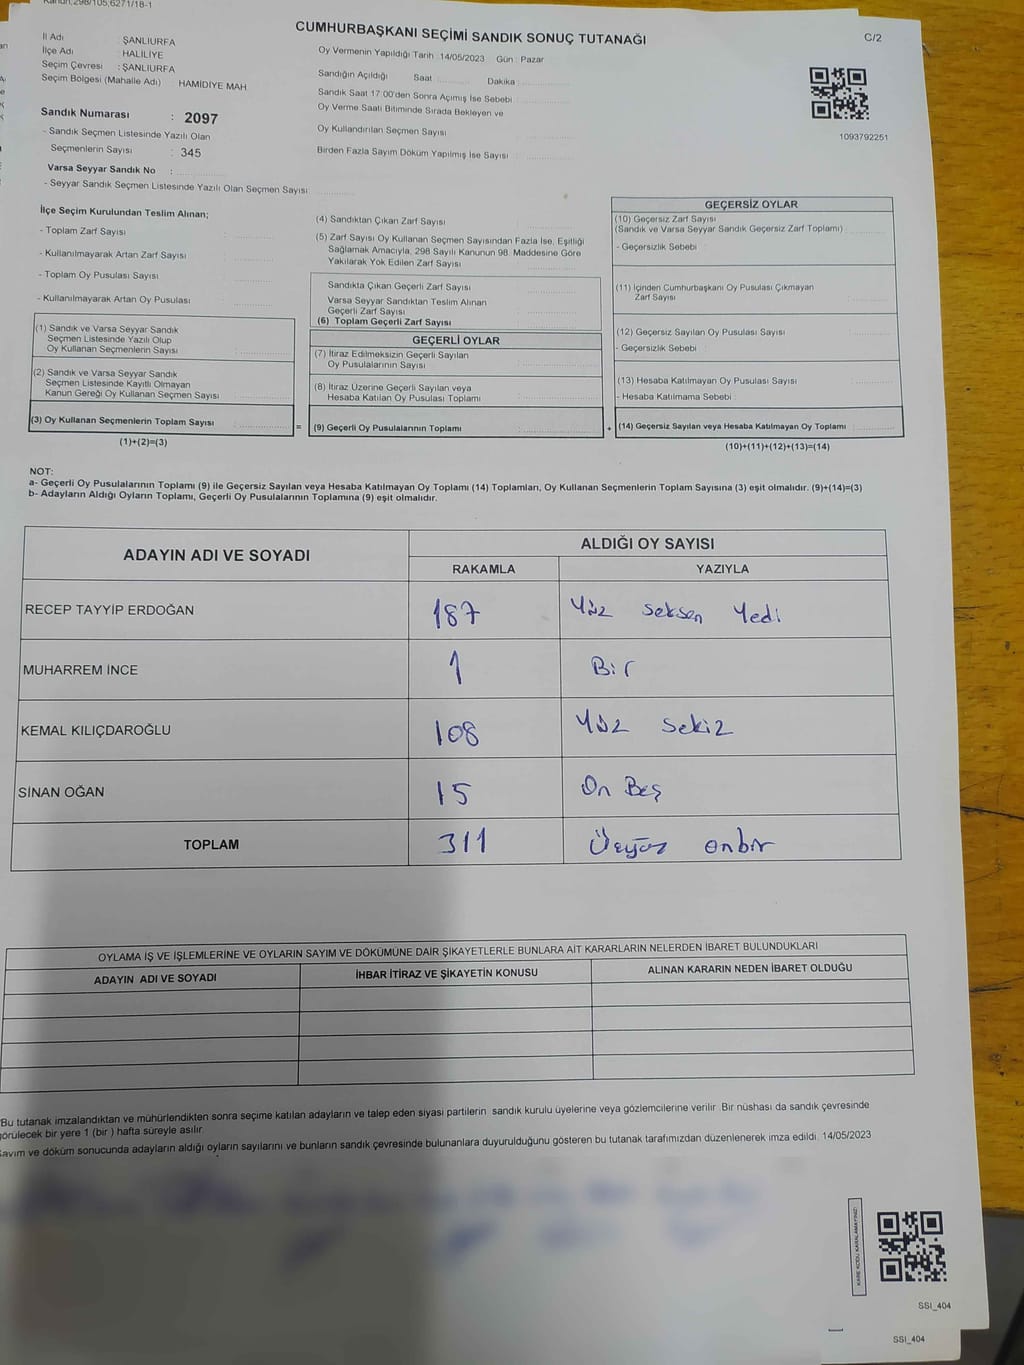 Kanun,298/105,6271/18-1
CUMHURBAŞKANI SEÇİMİ SANDIK SONUÇ TUTANAĞI
C/2
İl Adı : ŞANLIURFA
İlçe Adı : HALİLİYE
Seçim Çevresi : ŞANLIURFA
Seçim Bölgesi (Mahalle Adı) HAMİDİYE MAH.
Oy Vermenin Yapıldığı Tarih : 14/05/2023 Gün : Pazar
Sandığın Açıldığı Saat Dakika
Sandık Saat 17:00'den Sonra Açımış İse Sebebi
Oy Verme Saati Bitiminde Sırada Bekleyen ve
Oy Kullandırılan Seçmen Sayısı
Birden Fazla Sayım Döküm Yapılmış İse Sayısı
1093792251
Sandık Numarası : 2097
- Sandık Seçmen Listesinde Yazılı Olan
Seçmenlerin Sayısı : 345
Varsa Seyyar Sandık No :
- Seyyar Sandık Seçmen Listesinde Yazılı Olan Seçmen Sayısı
İlçe Seçim Kurulundan Teslim Alınan;
- Toplam Zarf Sayısı
- Kullanılmayarak Artan Zarf Sayısı
- Toplam Oy Pusulası Sayısı
- Kullanılmayarak Artan Oy Pusulası
(1) Sandık ve Varsa Seyyar Sandık
Seçmen Listesinde Yazılı Olup
Oy Kullanan Seçmenlerin Sayısı
(2) Sandık ve Varsa Seyyar Sandık
Seçmen Listesinde Kayıtlı Olmayan
Kanun Gereği Oy Kullanan Seçmen Sayısı
(3) Oy Kullanan Seçmenlerin Toplam Sayısı
(1)+(2)=(3)
(4) Sandıktan Çıkan Zarf Sayısı
(5) Zarf Sayısı Oy Kullanan Seçmen Sayısından Fazla İse, Eşitliği
Sağlamak Amacıyla, 298 Sayılı Kanunun 98. Maddesine Göre
Yakılarak Yok Edilen Zarf Sayısı
Sandıkta Çıkan Geçerli Zarf Sayısı
Varsa Seyyar Sandıktan Teslim Alınan
Geçerli Zarf Sayısı
(6) Toplam Geçerli Zarf Sayısı
GEÇERLİ OYLAR
(7) İtiraz Edilmeksizin Geçerli Sayılan
Oy Pusulalarının Sayısı
(8) İtiraz Üzerine Geçerli Sayılan veya
Hesaba Katılan Oy Pusulası Toplamı
= (9) Geçerli Oy Pusulalarının Toplamı
GEÇERSİZ OYLAR
(10) Geçersiz Zarf Sayısı
(Sandık ve Varsa Seyyar Sandık Geçersiz Zarf Toplamı)
- Geçersizlik Sebebi
(11) İçinden Cumhurbaşkanı Oy Pusulası Çıkmayan
Zarf Sayısı
(12) Geçersiz Sayılan Oy Pusulası Sayısı
- Geçersizlik Sebebi
(13) Hesaba Katılmayan Oy Pusulası Sayısı
- Hesaba Katılmama Sebebi
+ (14) Geçersiz Sayılan veya Hesaba Katılmayan Oy Toplamı
(10)+(11)+(12)+(13)=(14)
NOT:
a- Geçerli Oy Pusulalarının Toplamı (9) ile Geçersiz Sayılan veya Hesaba Katılmayan Oy Toplamı (14) Toplamları, Oy Kullanan Seçmenlerin Toplam Sayısına (3) eşit olmalıdır. (9)+(14)=(3)
b- Adayların Aldığı Oyların Toplamı, Geçerli Oy Pusulalarının Toplamına (9) eşit olmalıdır.
ADAYIN ADI VE SOYADI
ALDIĞI OY SAYISI
RAKAMLA YAZIYLA
RECEP TAYYİP ERDOĞAN 187 Yüz seksen Yedi
MUHARREM İNCE 1 Bir
KEMAL KILIÇDAROĞLU 108 Yüz Sekiz
SİNAN OĞAN 15 On Beş
TOPLAM 311 Üçyüz onbir
OYLAMA İŞ VE İŞLEMLERİNE VE OYLARIN SAYIM VE DÖKÜMÜNE DAİR ŞİKAYETLERLE BUNLARA AİT KARARLARIN NELERDEN İBARET BULUNDUKLARI
ADAYIN ADI VE SOYADI İHBAR İTİRAZ VE ŞİKAYETİN KONUSU ALINAN KARARIN NEDEN İBARET OLDUĞU
Bu tutanak imzalandıktan ve mühürlendikten sonra seçime katılan adayların ve talep eden siyasi partilerin sandık kurulu üyelerine veya gözlemcilerine verilir. Bir nüshası da sandık çevresinde
görülecek bir yere 1 (bir ) hafta süreyle asılır.
Sayım ve döküm sonucunda adayların aldığı oyların sayılarını ve bunların sandık çevresinde bulunanlara duyurulduğunu gösteren bu tutanak tarafımızdan düzenlenerek imza edildi. 14/05/2023
KARE KODU KARALAMAYINIZ!
SSI_404
SSI_404